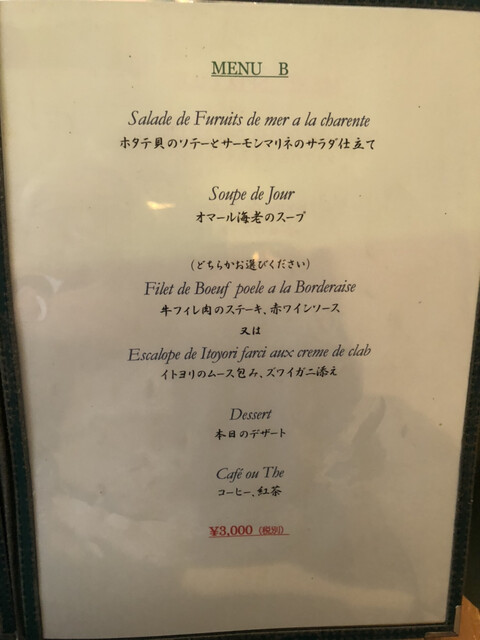 MENU B
Salade de Furuits de mer a la charente
ホタテ貝のソテーとサーモンマリネのサラダ仕立て
Soupe de Jour
オマール海老のスープ
(どちらかお選びください)
Filet de Boeuf poele a la Borderaise
牛フィレ肉のステーキ、赤ワインソース
又は
Escalope de Itoyori farci aux creme de clab
イトヨリのムース包み、ズワイガニ添え
Dessert
本日のデザート
Café ou The
コーヒー、紅茶
¥3,000 (税別)